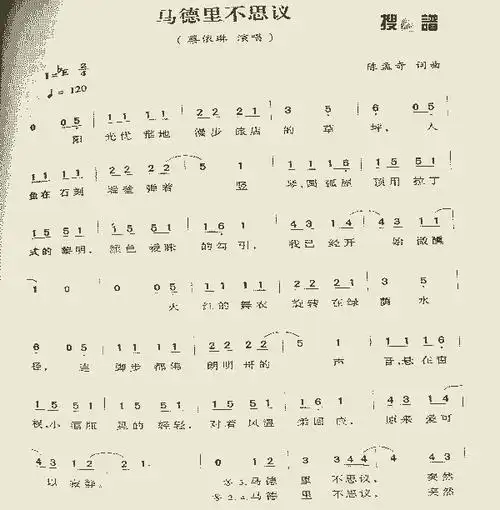 马德里不思议
搜 谱
(蔡依琳 演唱)
1=bE
陈孟奇 词曲
♩=120
0 05 | 11 11 | 22 21 | 3 5 | 6 05 |
阳 光优 雅地 漫步 旅店 的 草 坪, 人
11 11 | 22 22 | 5 1 | 11 16 | 15 51 |
鱼在 石刻 弹着 竖 琴,圆弧 屋顶用 拉丁
15 51 | 15 51 | 16 1 | 43 14 | 43 11 |
式的 黎明, 颜色 暧昧 的勾引, 我已 经开 始微醺
1 0 | 0 05 | 11 11 | 22 21 | 3 5 |
火 红的 舞衣 旋转 在绿 荫 水
6 05 | 11 11 | 22 22 | 5 1 | 11 16 |
径, 连 脚步 都像 朗明 哥的 声 音,悬在 窗
15 51 | 15 51 | 15 51 | 16 1 | 43 14 |
口,小 酒瓶 里的 轻轻, 对着 风温 回应, 原来 爱可
43 12 | 2 1. | 0 12 | 3 344 | 4 43 |
以寂静。 马德 里 不思议, 突然
马德 里 不思议, 突然